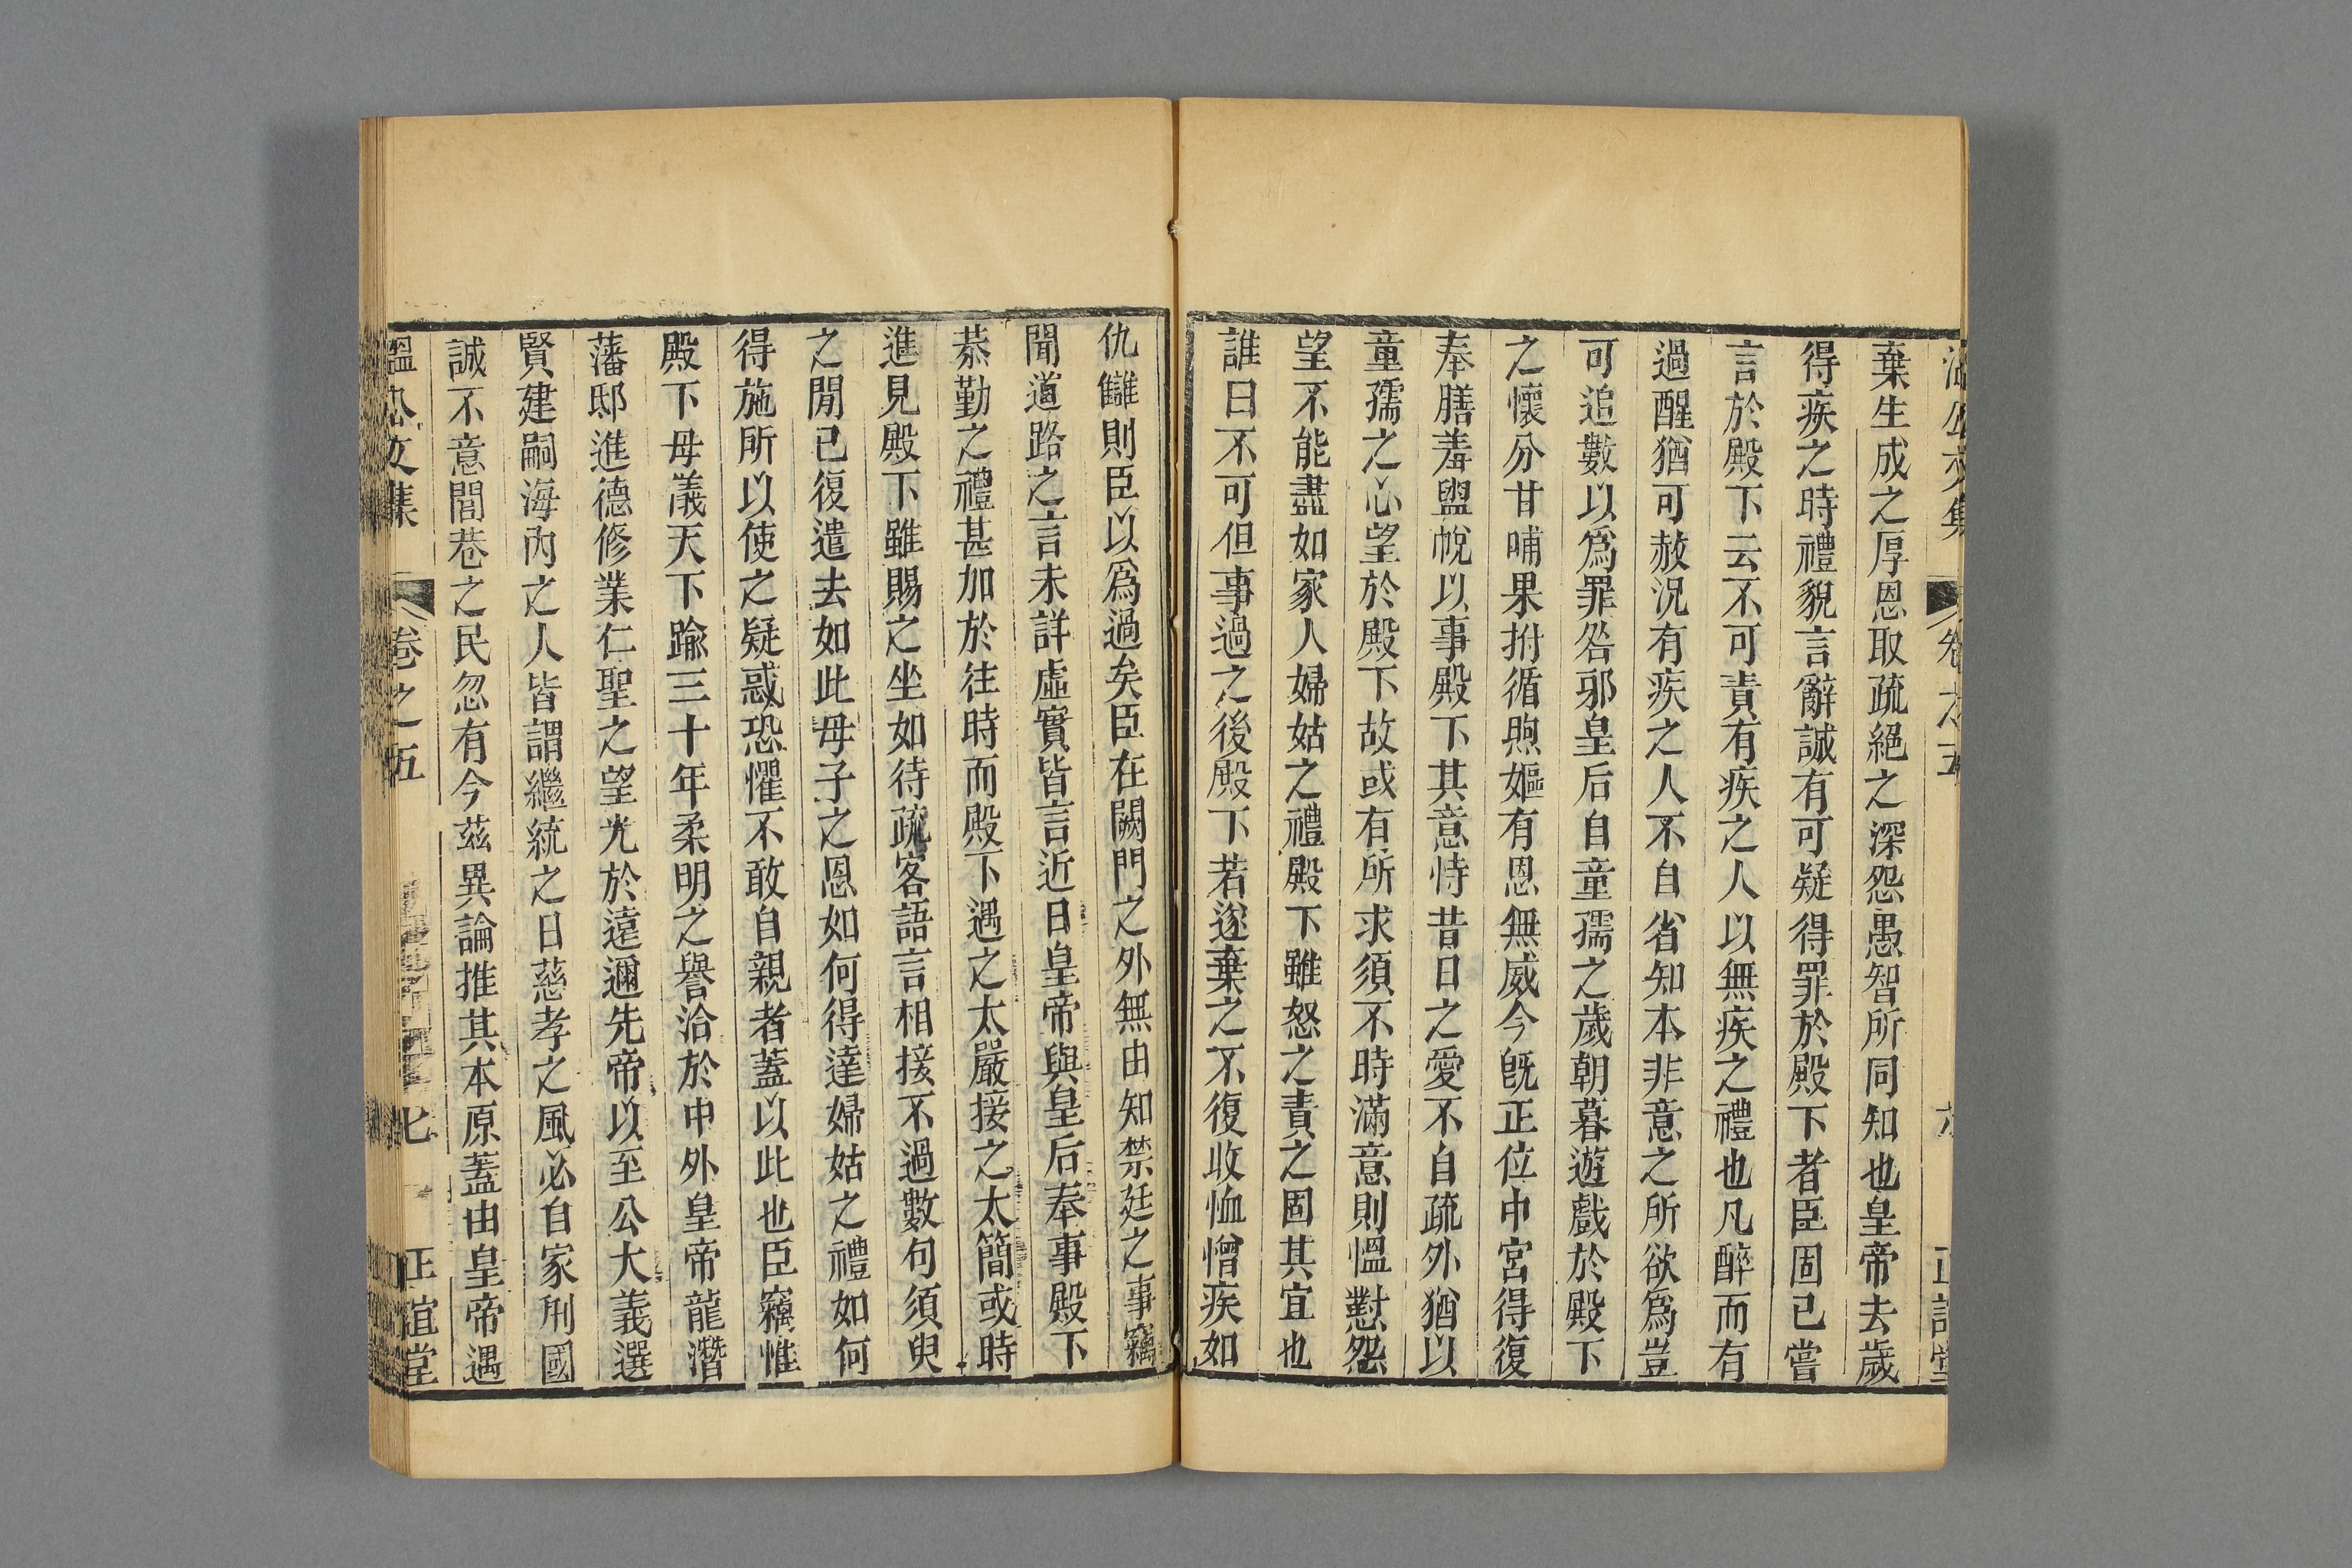 棄生成之厚恩取疏絕之深怨愚智所同知也皇帝去歲
得疾之時禮貌言辭誠有可疑得罪於殿下者臣固已嘗
言於殿下云不可責有疾之人以無疾之禮也凡醉而有
過醒猶可赦況有疾之人不自省知本非意之所欲爲豈
可追數以爲罪咎邪皇后自童孺之歲朝暮遊戲於殿下
之懷分甘哺果拊循煦嫗有恩無威今旣正位中宮得復
奉膳羞盥帨以事殿下其意恃昔日之愛不自疏外猶以
童孺之心望於殿下故或有所求須不時滿意則慍懟怨
望不能盡如家人婦姑之禮殿下雖怒之責之固其宜也
誰曰不可但事過之後殿下若遂棄之不復收恤憎疾如
仇讎則臣以爲過矣臣在闕門之外無由知禁廷之事竊
聞道路之言未詳虛實皆言近日皇帝與皇后奉事殿下
恭勤之禮甚加於往時而殿下遇之太嚴接之太簡或時
進見殿下雖賜之坐如待疏客語言相接不過數句須臾
之閒已復遣去如此母子之恩如何得達婦姑之禮如何
得施所以使之疑惑恐懼不敢自親者蓋以此也臣竊惟
殿下母儀天下踰三十年柔明之譽洽於中外皇帝龍潛
藩邸進德修業仁聖之望光於遠邇先帝以至公大義選
賢建嗣海內之人皆謂繼統之日慈孝之風必自家刑國
誠不意閭巷之民忽有今茲異論推其本原蓋由皇帝遇
溫公文集 卷之五 七 正誼堂